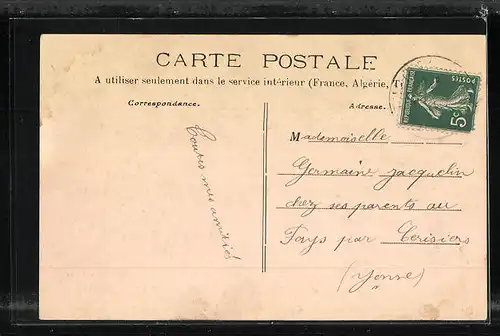 CARTE POSTALE
A utiliser seulement dans le service intérieur (France, Algérie,
Correspondance.
Adresse.
POSTES
REPUBLIQUE FRANÇAISE
5c
Toutes mes amitiés
Mademoiselle
Germaine Jacquelin
chez ses parents au
Fays par Cerisiers
(Yonne)